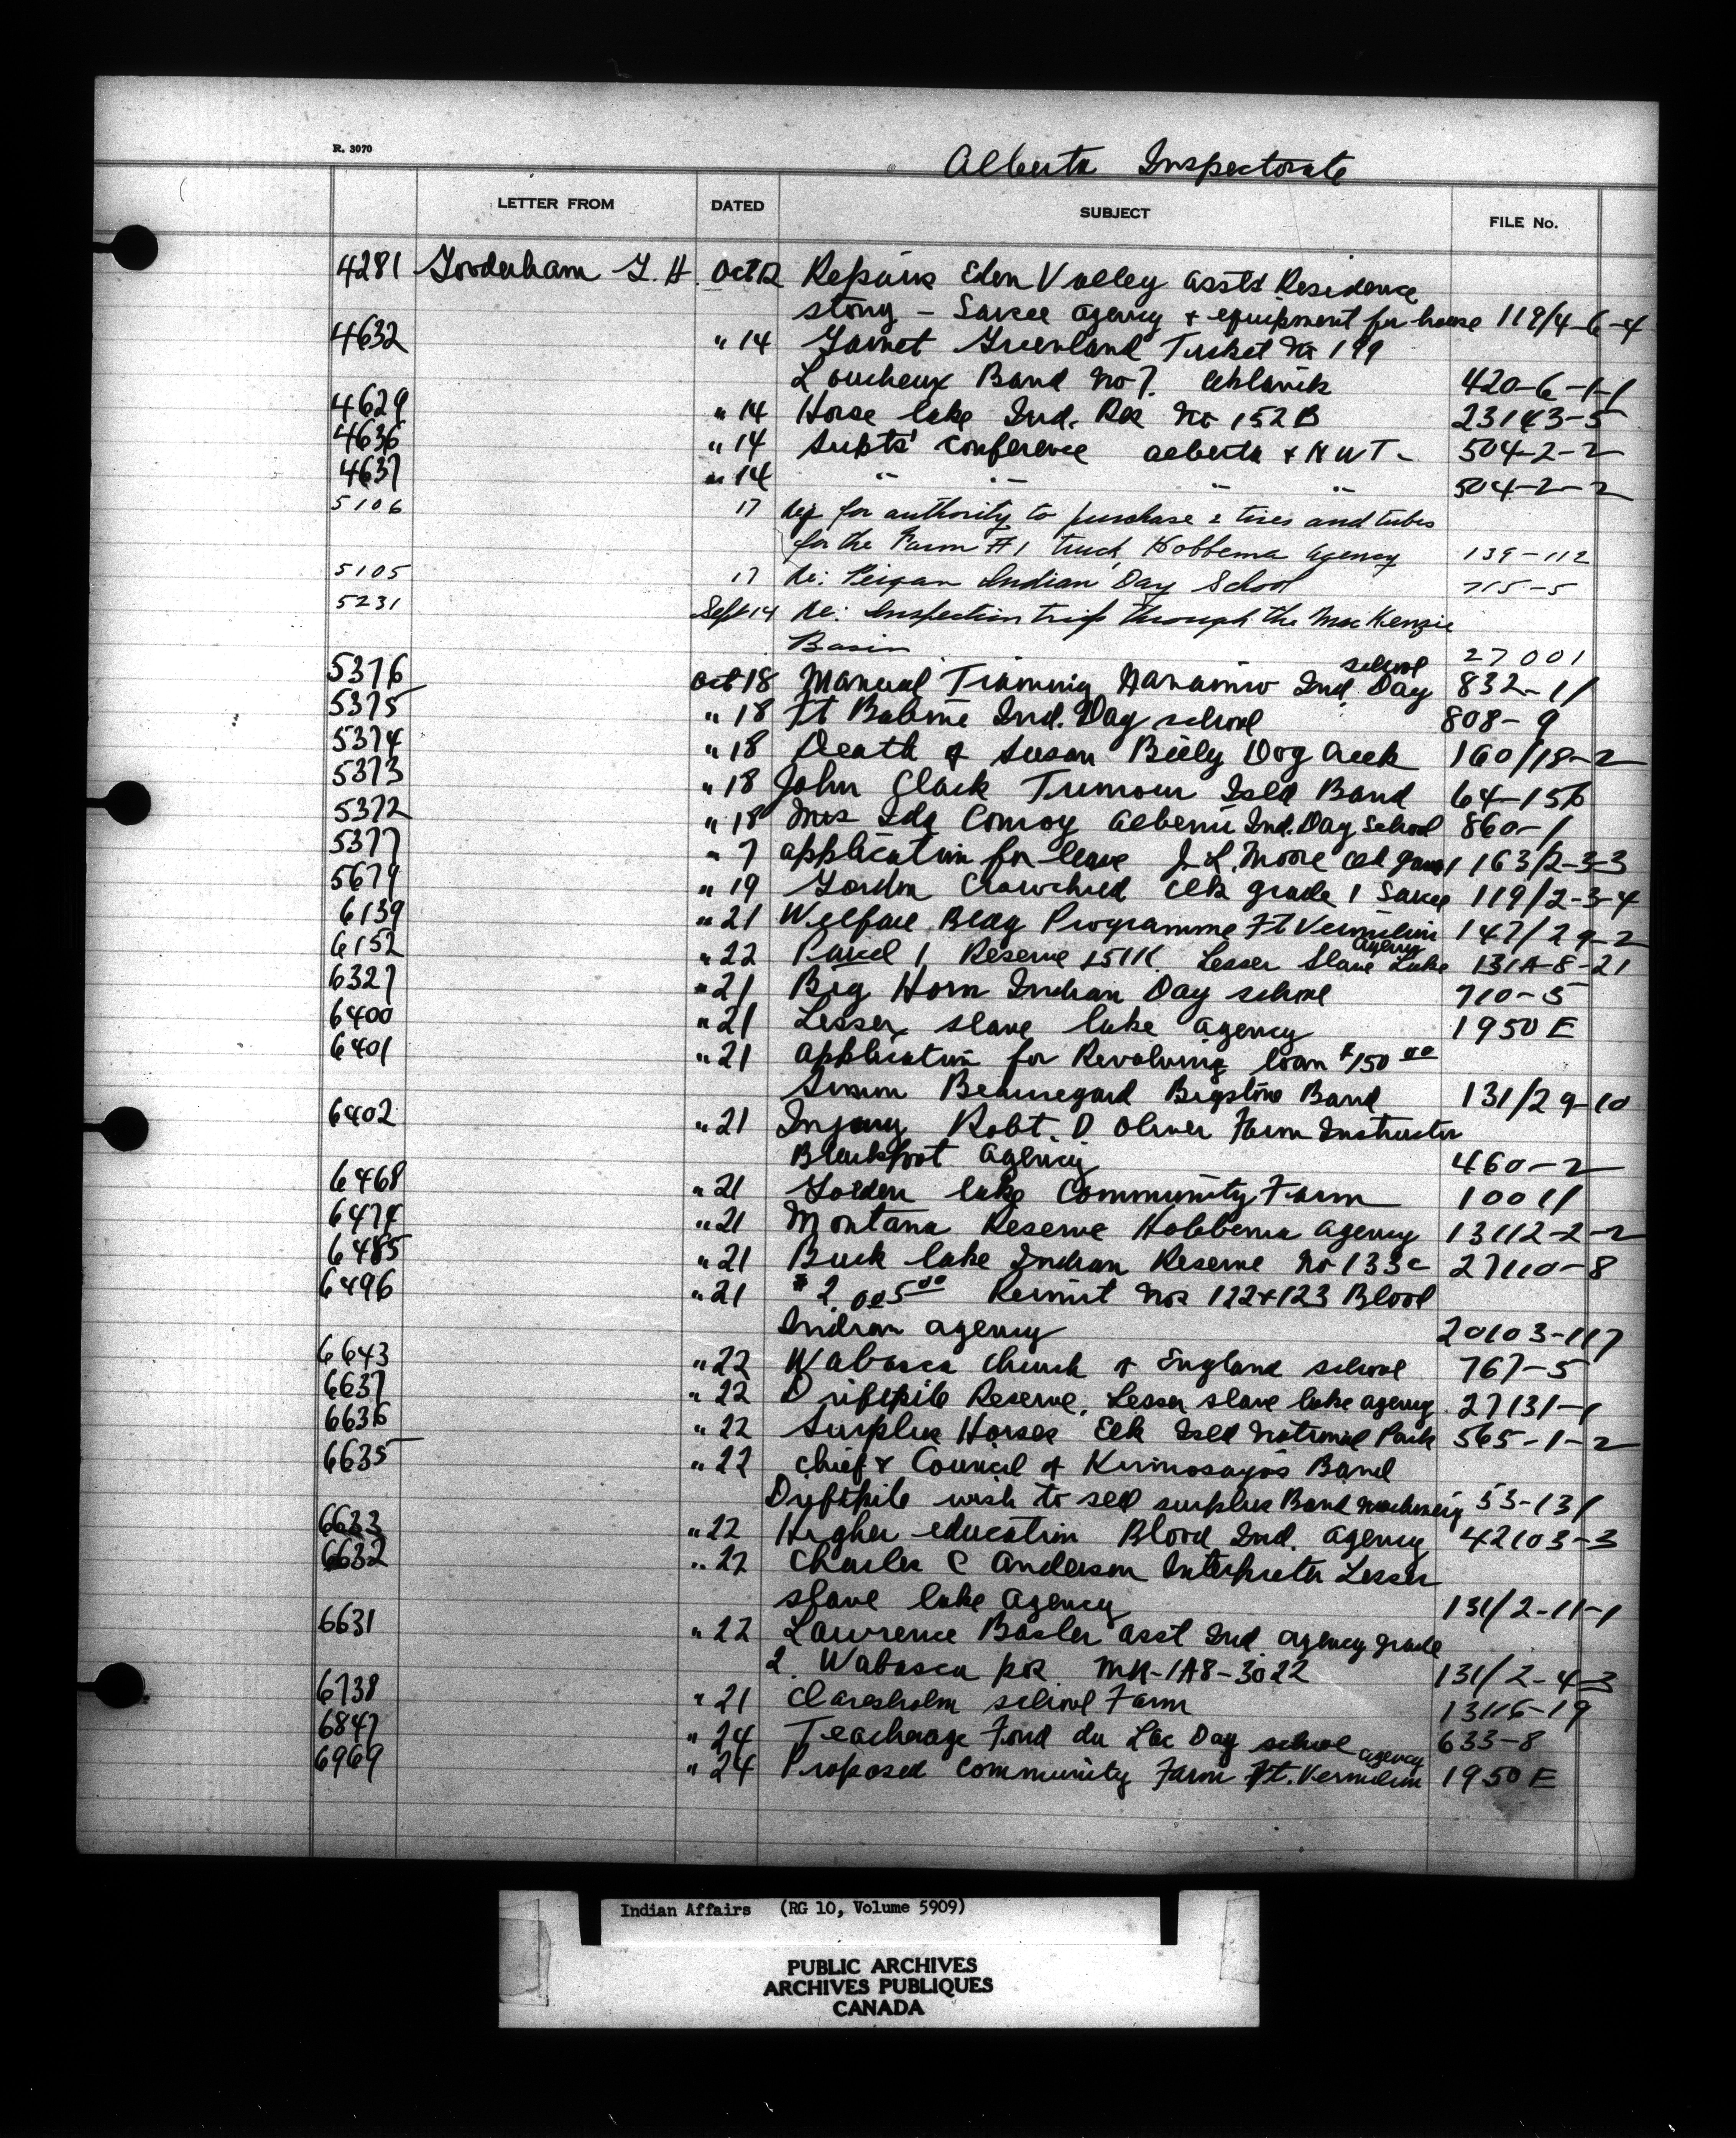 R. 3070
Alberta Inspectorate
LETTER FROM DATED SUBJECT FILE No.
4281 Gooderham G. H. Oct 12 Repairs Eden Valley asst's Residence
stony - Sarcee agency & equipment for house 119/4-6-4
4632 " 14 Garnet Greenland Ticket No 199
Loucheux Band No 7. Aklavik 420-6-1-1
4629 " 14 Horse lake Ind. Res No 152B 23143-5
4636 " 14 Supts' Conference alberta & NWT - 504-2-2
4637 " 14 " " " " 504-2-2
5106 17 Req for authority to purchase 2 tires and tubes
for the Farm #1 truck, Hobbema Agency 139-112
5105 17 Re: Peigan Indian Day School 715-5
5231 Sept 14 Re: Inspection trip through the MacKenzie
Basin 27001
5376 Oct 18 Manual Training Nanaimo Ind. Day school 832-11
5375 " 18 Ft Babine Ind. Day school 808-9
5374 " 18 Death of Susan Billy Dog Creek 160/18-2
5373 " 18 John Clark Turnour Isld Band 64-156
5372 " 18 Mrs Ida Conroy alberni Ind. Day School 860-1
5377 " 7 application for leave J. L. Moore 163/2-3-3
5679 " 19 Gordon Crowchild Clk grade 1 Sarcee 119/2-3-4
6139 " 21 Welfare Bldg Programme Ft Vermilion 147/29-2
6152 " 22 Parcel 1 Reserve 151K. Lesser Slave Lake agency 131A-8-21
6327 " 21 Big Horn Indian Day school 710-5
6400 " 21 Lesser slave lake agency 1950 E
6401 " 21 application for Revolving loan $150 00
Simon Beauregard Bigstone Band 131/29-10
6402 " 21 Injury Robt. D Oliver Farm Instructor
Blackfoot agency 460-2
6468 " 21 Golden lake Community Farm 10011
6474 " 21 Montana Reserve Hobbema agency 13112-2-2
6485 " 21 Buck lake Indian Reserve No 133c 27110-8
6496 " 21 $ 2,005 00 Permit Nos 122 & 123 Blood
Indian agency 20103-117
6643 " 22 Wabasca Church of England school 767-5
6637 " 22 Driftpile Reserve. Lesser slave lake agency 27131-1
6636 " 22 Surplus Horses Elk Isld National Park 565-1-2
6635 " 22 Chief & Council of Kinnosayos Band
Driftpile wish to sell surplus Band machinery 53-131
6633 " 22 Higher education Blood Ind. agency 42103-3
6632 " 22 Charles C Anderson Interpreter Lesser
slave lake agency 131/2-11-1
6631 " 22 Lawrence Basler asst Ind agency grade
2. Wabasca pos MN-IA8-3022 131/2-4-3
6738 " 21 Claresholm school Farm 13116-19
6847 " 24 Teacherage Fond du Lac Day school 633-8
6969 " 24 Proposed Community Farm Ft. Vermilion agency 1950 E
Indian Affairs (RG 10, Volume 5909)
PUBLIC ARCHIVES
ARCHIVES PUBLIQUES
CANADA